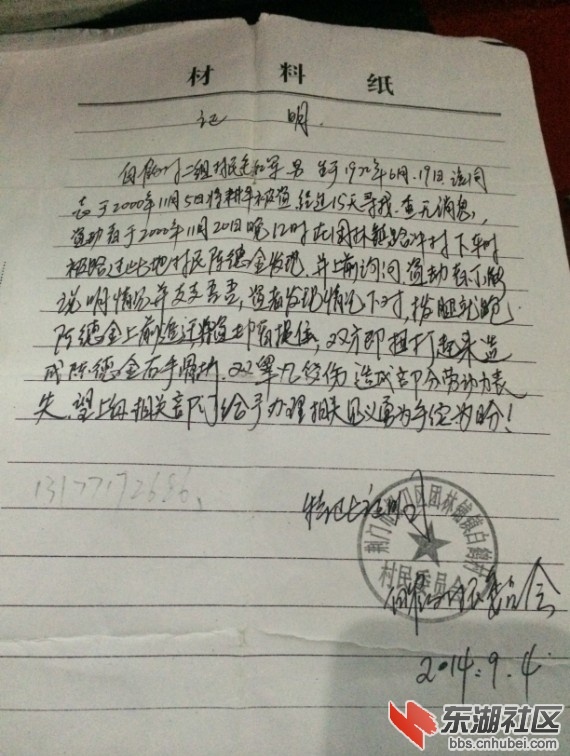 材 料 纸
证 明
二组村民 军 男 生于1972年6月19日 该同
志于2000年11月5日将耕牛被盗,经过15天寻找,查无消息,
盗劫者于2000年11月20日晚12时在团林铺 村下车时
被路过此地村民陈德金发现,并上前询问,盗劫者不能
说明情况并支支吾吾,盗者发现情况不对,拔腿就跑
陈德金上前追 盗 ,双方即扭打起来造
成陈德金右手骨折,双睾丸 伤 造成部分劳动力丧
失,望上级相关部门给予办理相关见义勇为手续为盼!
13177172686
特此证明
荆门 区团林铺镇白 村
村民委员会
村民委员会
2014.9.4
东湖社区
bbs.cnhubei.com